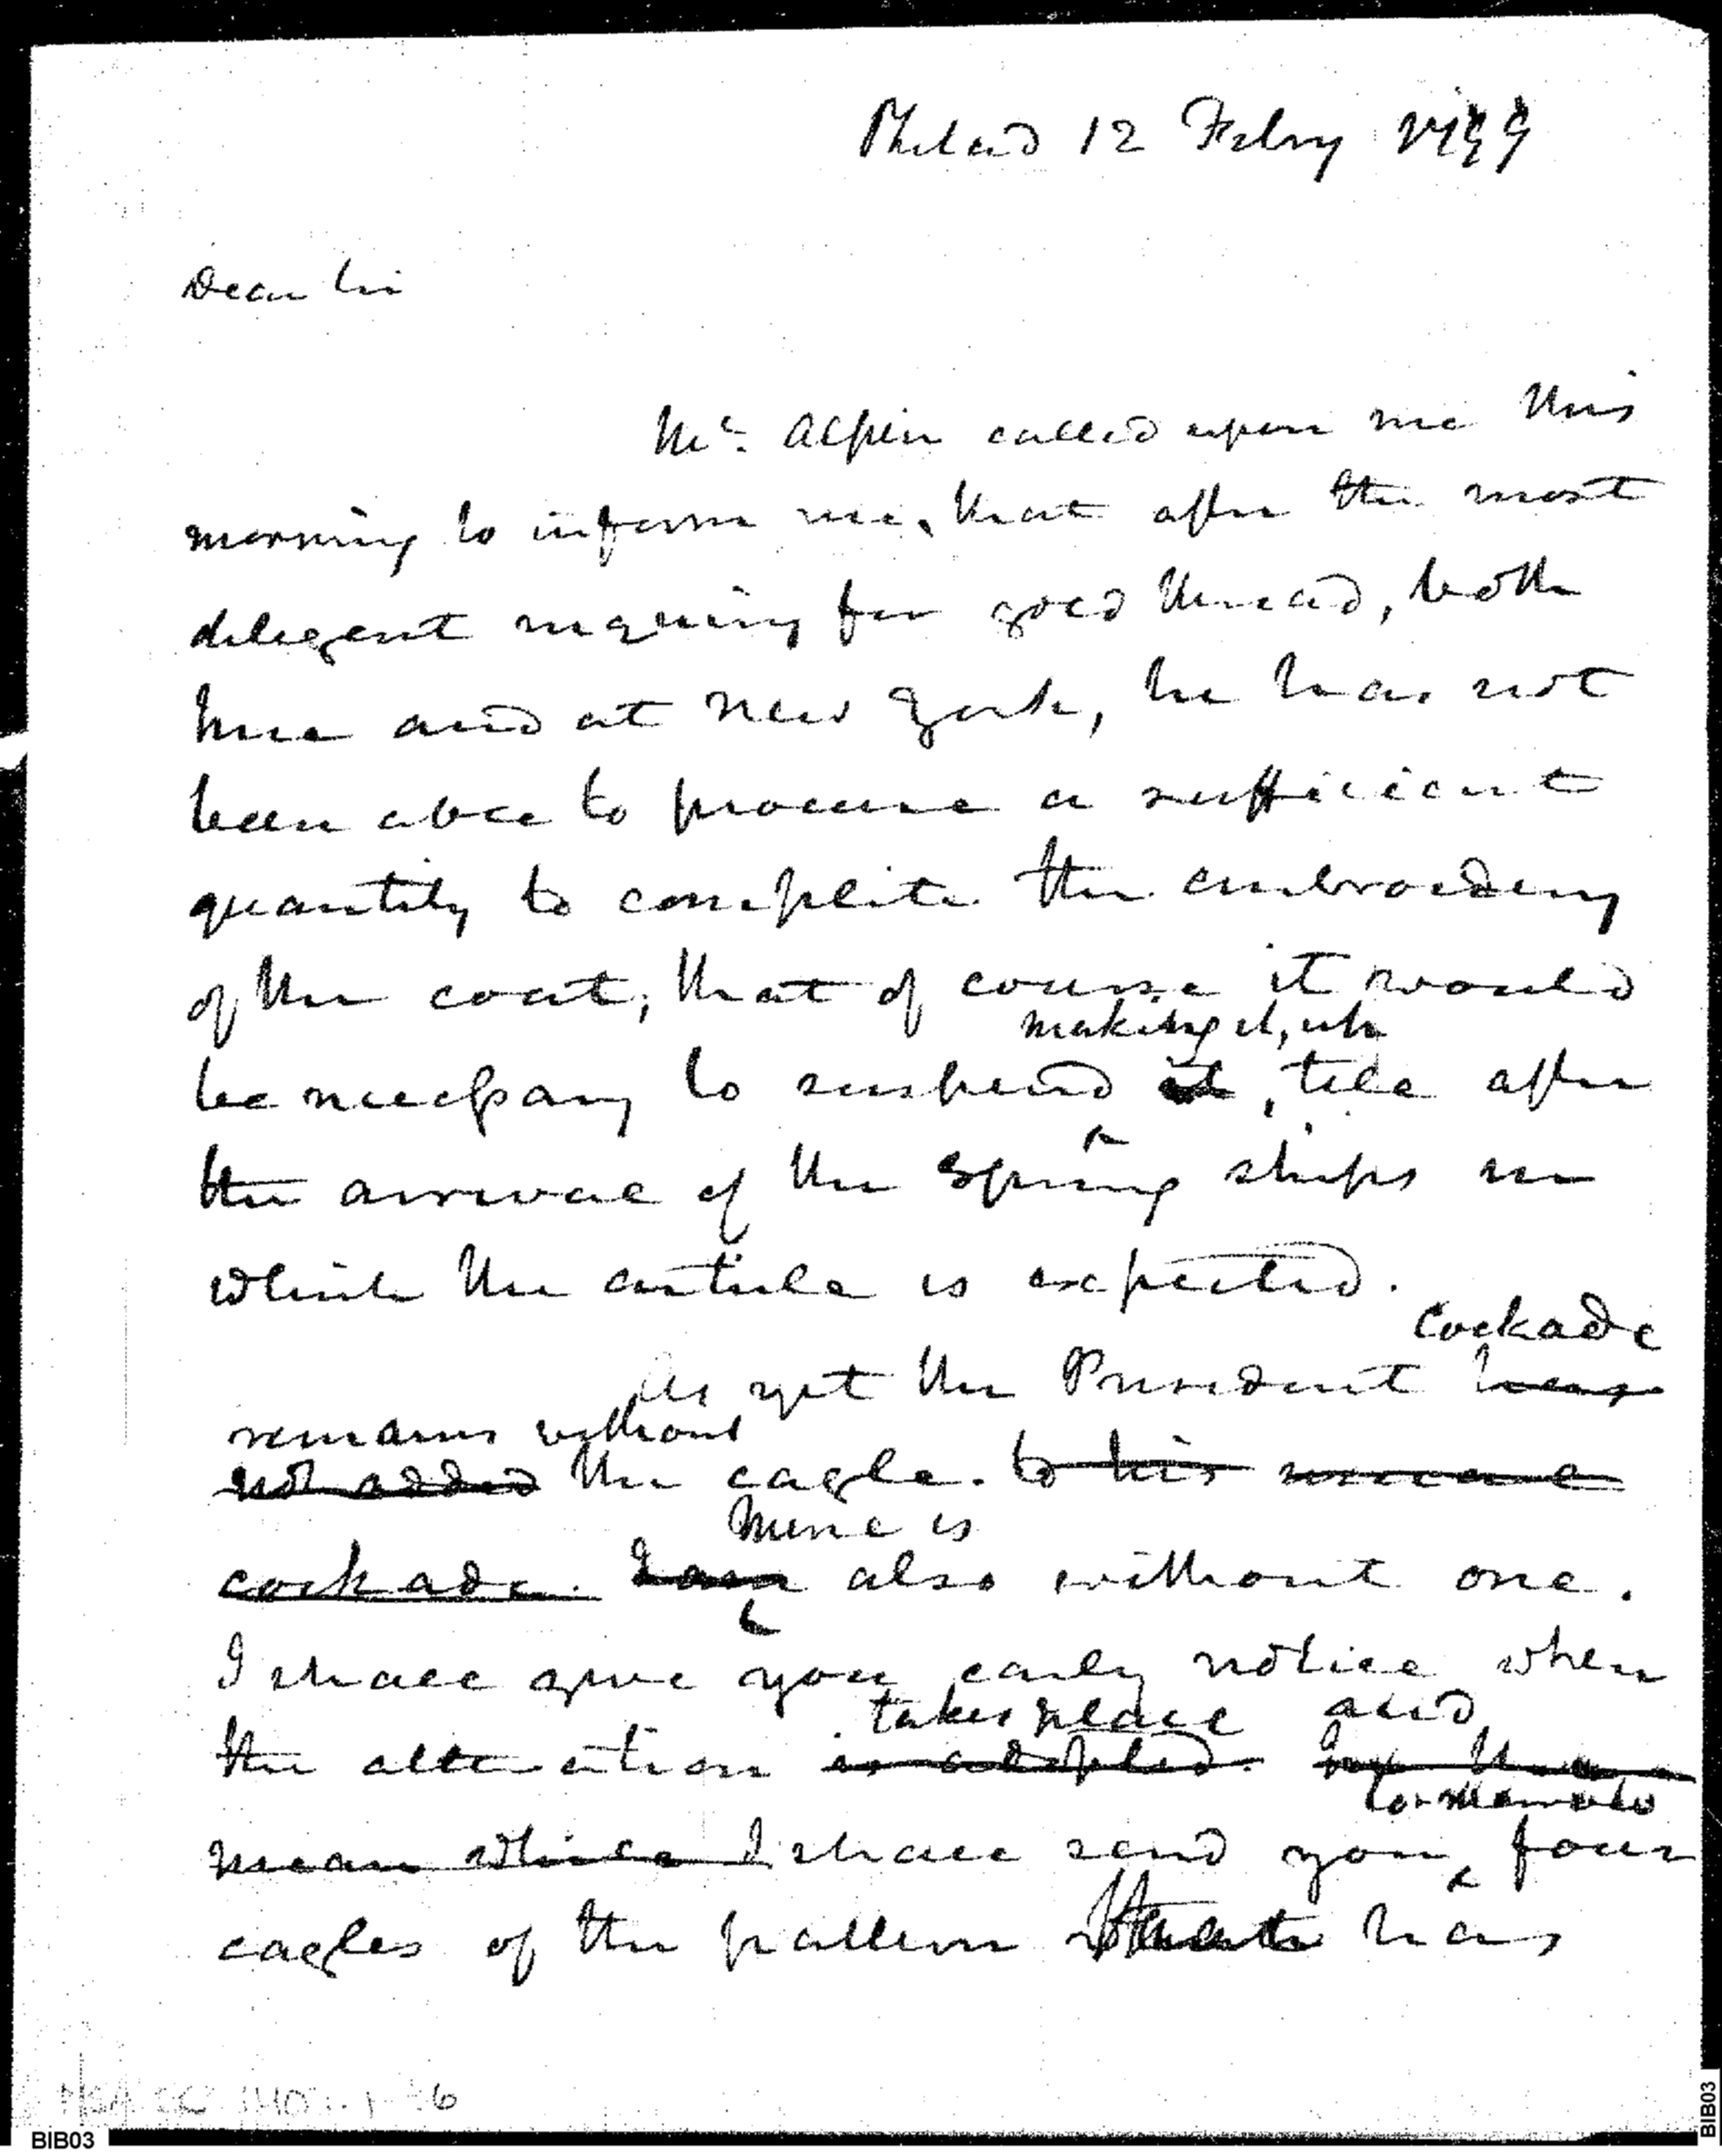 Philad 12 Febry 1799
Dear Sir
Mc. Alpin called upon me this
morning to inform me, that after the most
diligent inquiry for gold thread, both
here and at New York, he has not
been able to procure a sufficient
quantity to complete the embroidery
of the coat; that of course it would
making it, up
be necessary to suspend it, till after
the arrival of the Spring ships in
which the article is expected.
cockade
As yet the President has
remains without
not added the eagle. to his usual
Mine is
cockade. I am also without one.
I shall give you early notice when
takes place and
the alteration is adopted. In the
mean while I shall send you four
eagles of the pattern that has
BIB03
BIB03